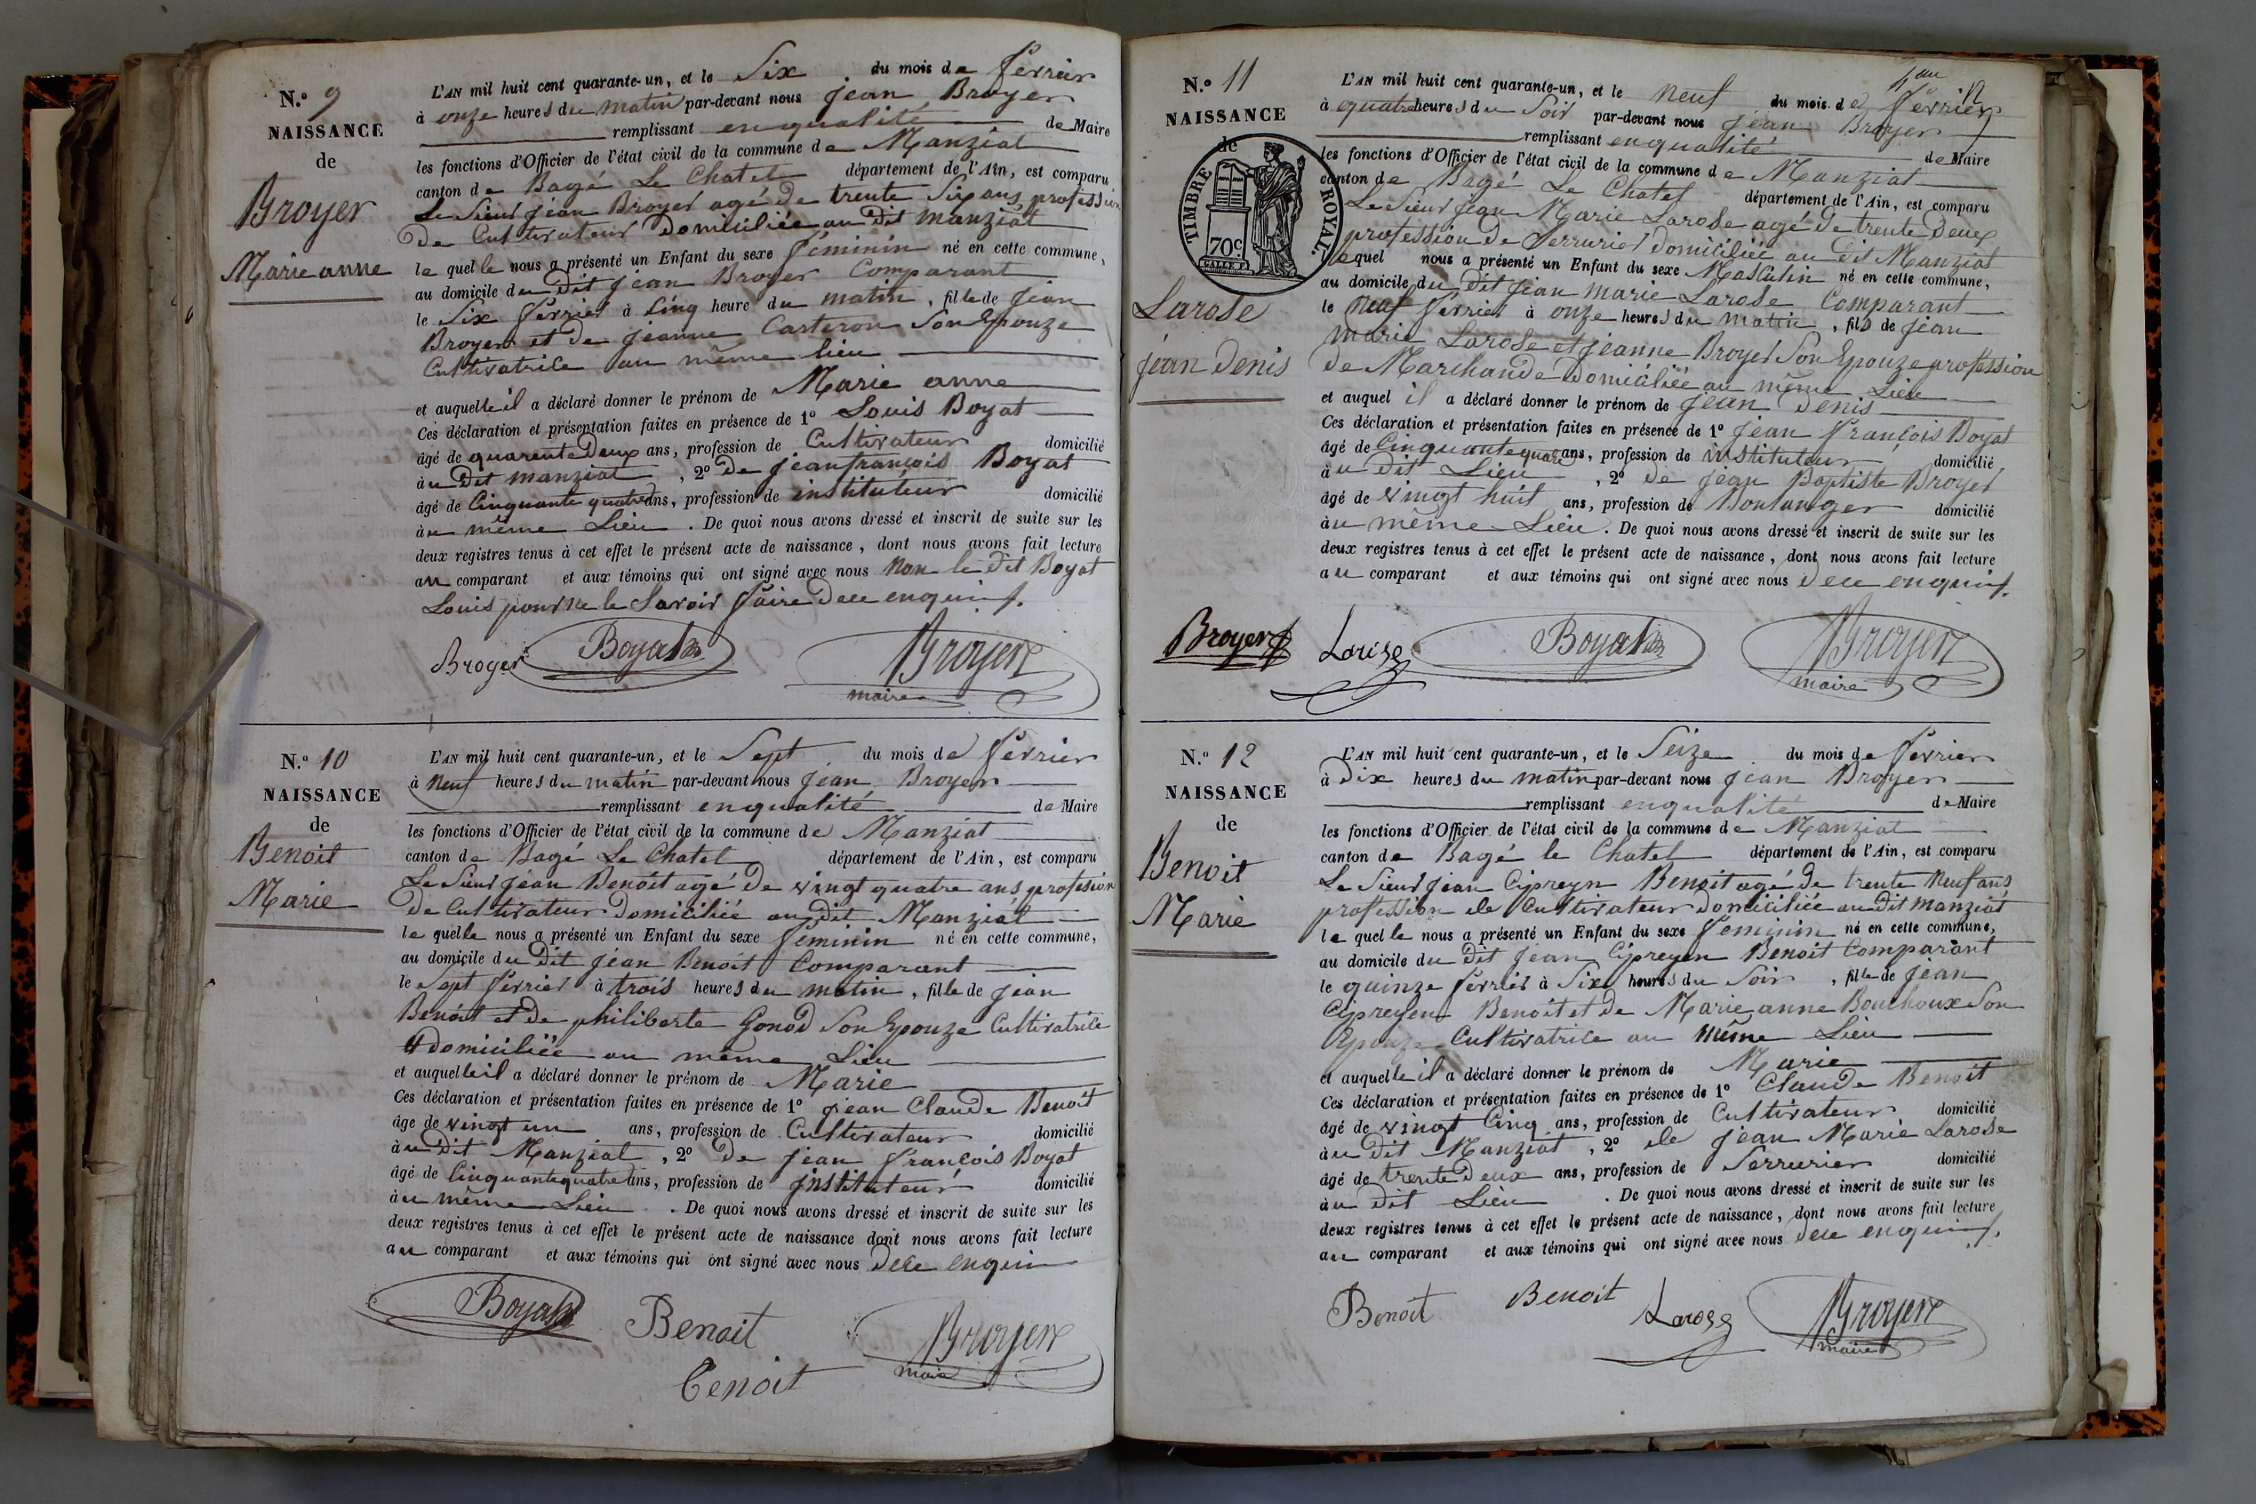 N.o 9
NAISSANCE
de
Broyer
Marie anne
L'AN mil huit cent quarante-un, et le Six du mois de ferrier
à onze heures du matin par-devant nous jean Broyer
remplissant enqualité de Maire
les fonctions d'Officier de l'état civil de la commune de Manziat
canton de Bagé Le Chatel département de l'Ain, est comparu
Le Sieur jean Broyer agé de trente Six ans profession
De Cultivateur Domiciliée au dit manziat
le quel le nous a présenté un Enfant du sexe féminin né en cette commune,
au domicile du Dit jean Broyer Comparant
le Six ferrier à Cinq heure du matin, fille de jean
Broyer et de jeanne Carteron Son Epouze
Cultivatrice au même lieu
et auquelle il a déclaré donner le prénom de Marie anne
Ces déclaration et présentation faites en présence de 1o Louis Boyat
âgé de quarente Deux ans, profession de Cultivateur domicilié
àu Dit manziat, 2o De jeanfrançois Boyat
âgé de Cinquante quatre ans, profession de instituteur domicilié
àu même Lieu. De quoi nous avons dressé et inscrit de suite sur les
deux registres tenus à cet effet le présent acte de naissance, dont nous avons fait lecture
au comparant et aux témoins qui ont signé avec nous Non le dit Boyat
Louis pour ne le Savoir faire Dece enquis.
Broyer Boyat Broyer
maire
N.o 10
NAISSANCE
de
Benoit
Marie
L'AN mil huit cent quarante-un, et le Sept du mois de ferrier
à Neuf heures du matin par-devant nous jean Broyer
remplissant enqualité de Maire
les fonctions d'Officier de l'état civil de la commune de Manziat
canton de Bagé Le Chatel département de l'Ain, est comparu
Le Sieur jean Benoit agé de vingt quatre ans profesion
De Cultivateur Domiciliée au dit Manziat
le quelle nous a présenté un Enfant du sexe féminin né en cette commune,
au domicile du Dit jean Benoit Comparant
le Sept ferrier à trois heures du matin, fille de jean
Benoit et De philiberte Gonod Son Epouze Cultivatrice
domiciliée au même Lieu
et auquelle il a déclaré donner le prénom de Marie
Ces déclaration et présentation faites en présence de 1o jean Claude Benoit
âge de vingt un ans, profession de Cultivateur domicilié
àu Dit Manziat, 2o De jean françois Boyat
âgé de Cinquantequatre ans, profession de instituteur domicilié
àu même Lieu. De quoi nous avons dressé et inscrit de suite sur les
deux registres tenus à cet effet le présent acte de naissance dont nous avons fait lecture
au comparant et aux témoins qui ont signé avec nous Dece enquis
Boyat Benoit Broyer
maire
Benoit
N.o 11
NAISSANCE
de
TIMBRE ROYAL.
70c
Larose
jean Denis
L'AN mil huit cent quarante-un, et le Neuf du mois de ferrier
à quatre heures du Soir par-devant nous jean Broyer
remplissant enqualité de Maire
les fonctions d'Officier de l'état civil de la commune de Manziat
canton de Bagé Le Chatel département de l'Ain, est comparu
Le Sieur jean Marie Larose agé de trente Deux
profession de Serrurier Domiciliée au dit Manziat
lequel nous a présenté un Enfant du sexe Masculin né en cette commune,
au domicile du Dit jean marie Larose Comparant
le neuf ferrier à onze heures du matin, fils de jean
marie Larose et jeanne Broyer Son Epouze profession
de Marchande Domiciliée au même Lieu
et auquel il a déclaré donner le prénom de jean Denis
Ces déclaration et présentation faites en présence de 1o jean françois Boyat
âgé de Cinquantequatre ans, profession de instituteur domicilié
àu Dit Lieu, 2o De jean Baptiste Broyer
âgé de vingt huit ans, profession de Boulanger domicilié
àu même Lieu. De quoi nous avons dressé et inscrit de suite sur les
deux registres tenus à cet effet le présent acte de naissance, dont nous avons fait lecture
au comparant et aux témoins qui ont signé avec nous Dece enquis.
Broyer Larose Boyat Broyer
maire
N.o 12
NAISSANCE
de
Benoit
Marie
L'AN mil huit cent quarante-un, et le Seize du mois de ferrier
à Dix heures du matin par-devant nous jean Broyer
remplissant enqualité de Maire
les fonctions d'Officier de l'état civil de la commune de Manziat
canton de Bagé le Chatel département de l'Ain, est comparu
Le Sieur jean Cipreyn Benoit agé de trente Neuf ans
profession de Cultivateur Domiciliée au dit manziat
le quel le nous a présenté un Enfant du sexe feminin né en cette commune,
au domicile du Dit jean Cipreyen Benoit Comparant
le quinze ferrier à Six heures du Soir, fille de jean
Cipreyen Benoit et de Marie anne Bouchoux Son
Epouze Cultivatrice au même Lieu
et auquelle il a déclaré donner le prénom de Marie
Ces déclaration et présentation faites en présence de 1o Claude Benoit
âgé de vingt Cinq ans, profession de Cultivateur domicilié
àu dit Manziat, 2o de jean Marie Larose
âgé de trente Deux ans, profession de Serrurier domicilié
àu dit Lieu. De quoi nous avons dressé et inscrit de suite sur les
deux registres tenus à cet effet le présent acte de naissance, dont nous avons fait lecture
au comparant et aux témoins qui ont signé avec nous Dece enquis.
Benoit Benoit Larose Broyer
maire